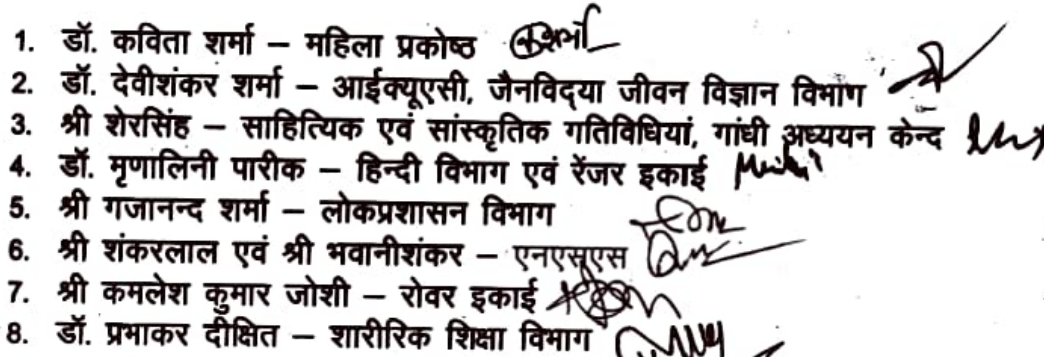 1. डॉ. कविता शर्मा – महिला प्रकोष्ठ
2. डॉ. देवीशंकर शर्मा – आईक्यूएसी, जैनविद्या जीवन विज्ञान विभाग
3. श्री शेरसिंह – साहित्यिक एवं सांस्कृतिक गतिविधियां, गांधी अध्ययन केन्द
4. डॉ. मृणालिनी पारीक – हिन्दी विभाग एवं रेंजर इकाई
5. श्री गजानन्द शर्मा – लोकप्रशासन विभाग
6. श्री शंकरलाल एवं श्री भवानीशंकर – एनएसएस
7. श्री कमलेश कुमार जोशी – रोवर इकाई
8. डॉ. प्रभाकर दीक्षित – शारीरिक शिक्षा विभाग